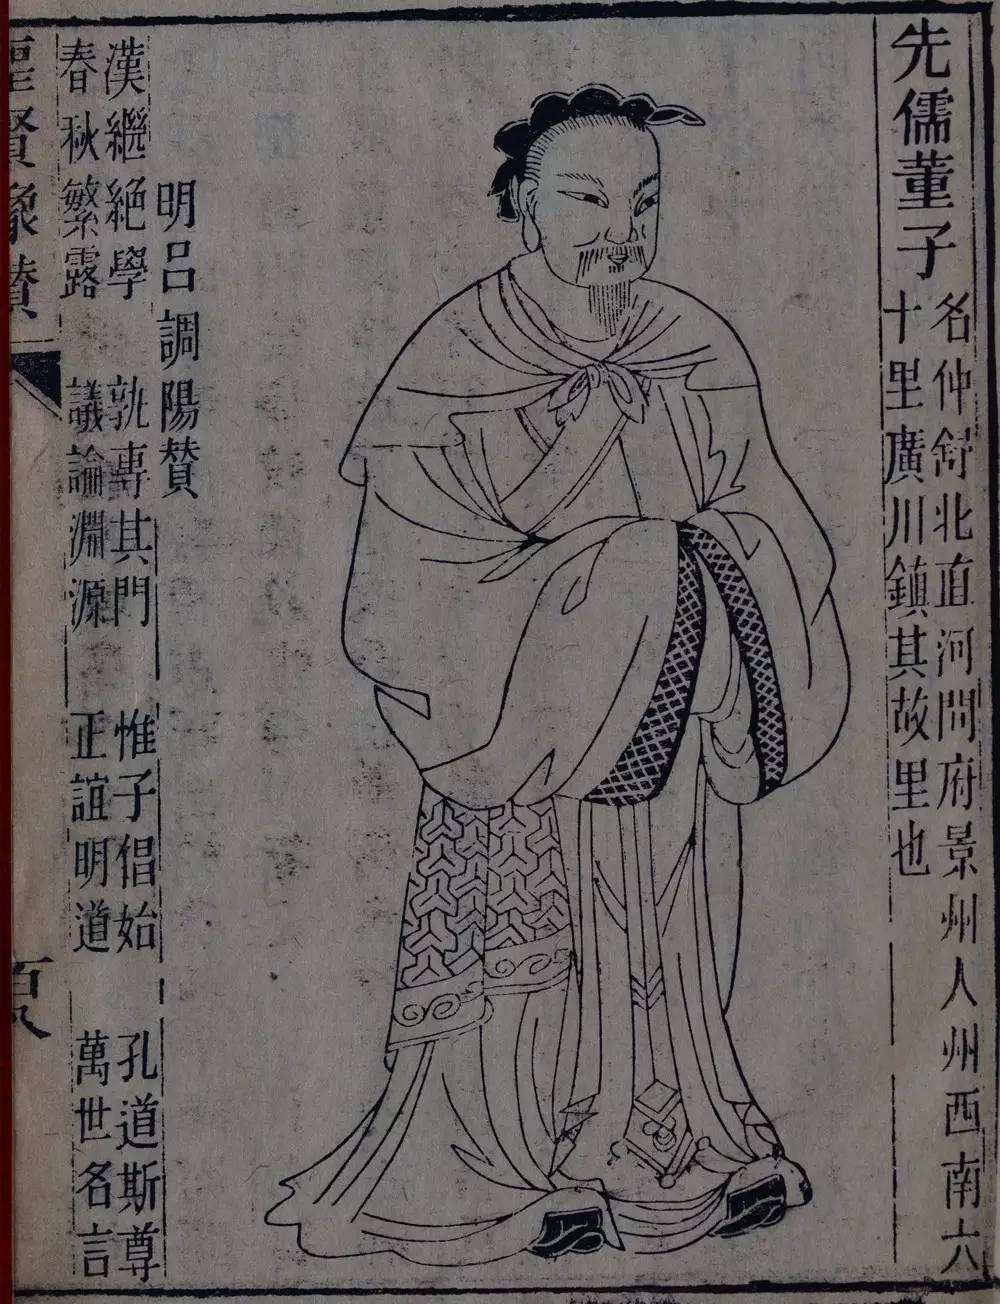 先儒董子
名仲舒北直河間府景州人州西南六
十里廣川鎮其故里也
明呂調陽贊
漢繼絕學 孰專其門 惟子倡始 孔道斯尊
春秋繁露 議論淵源 正誼明道 萬世名言
聖賢像贊